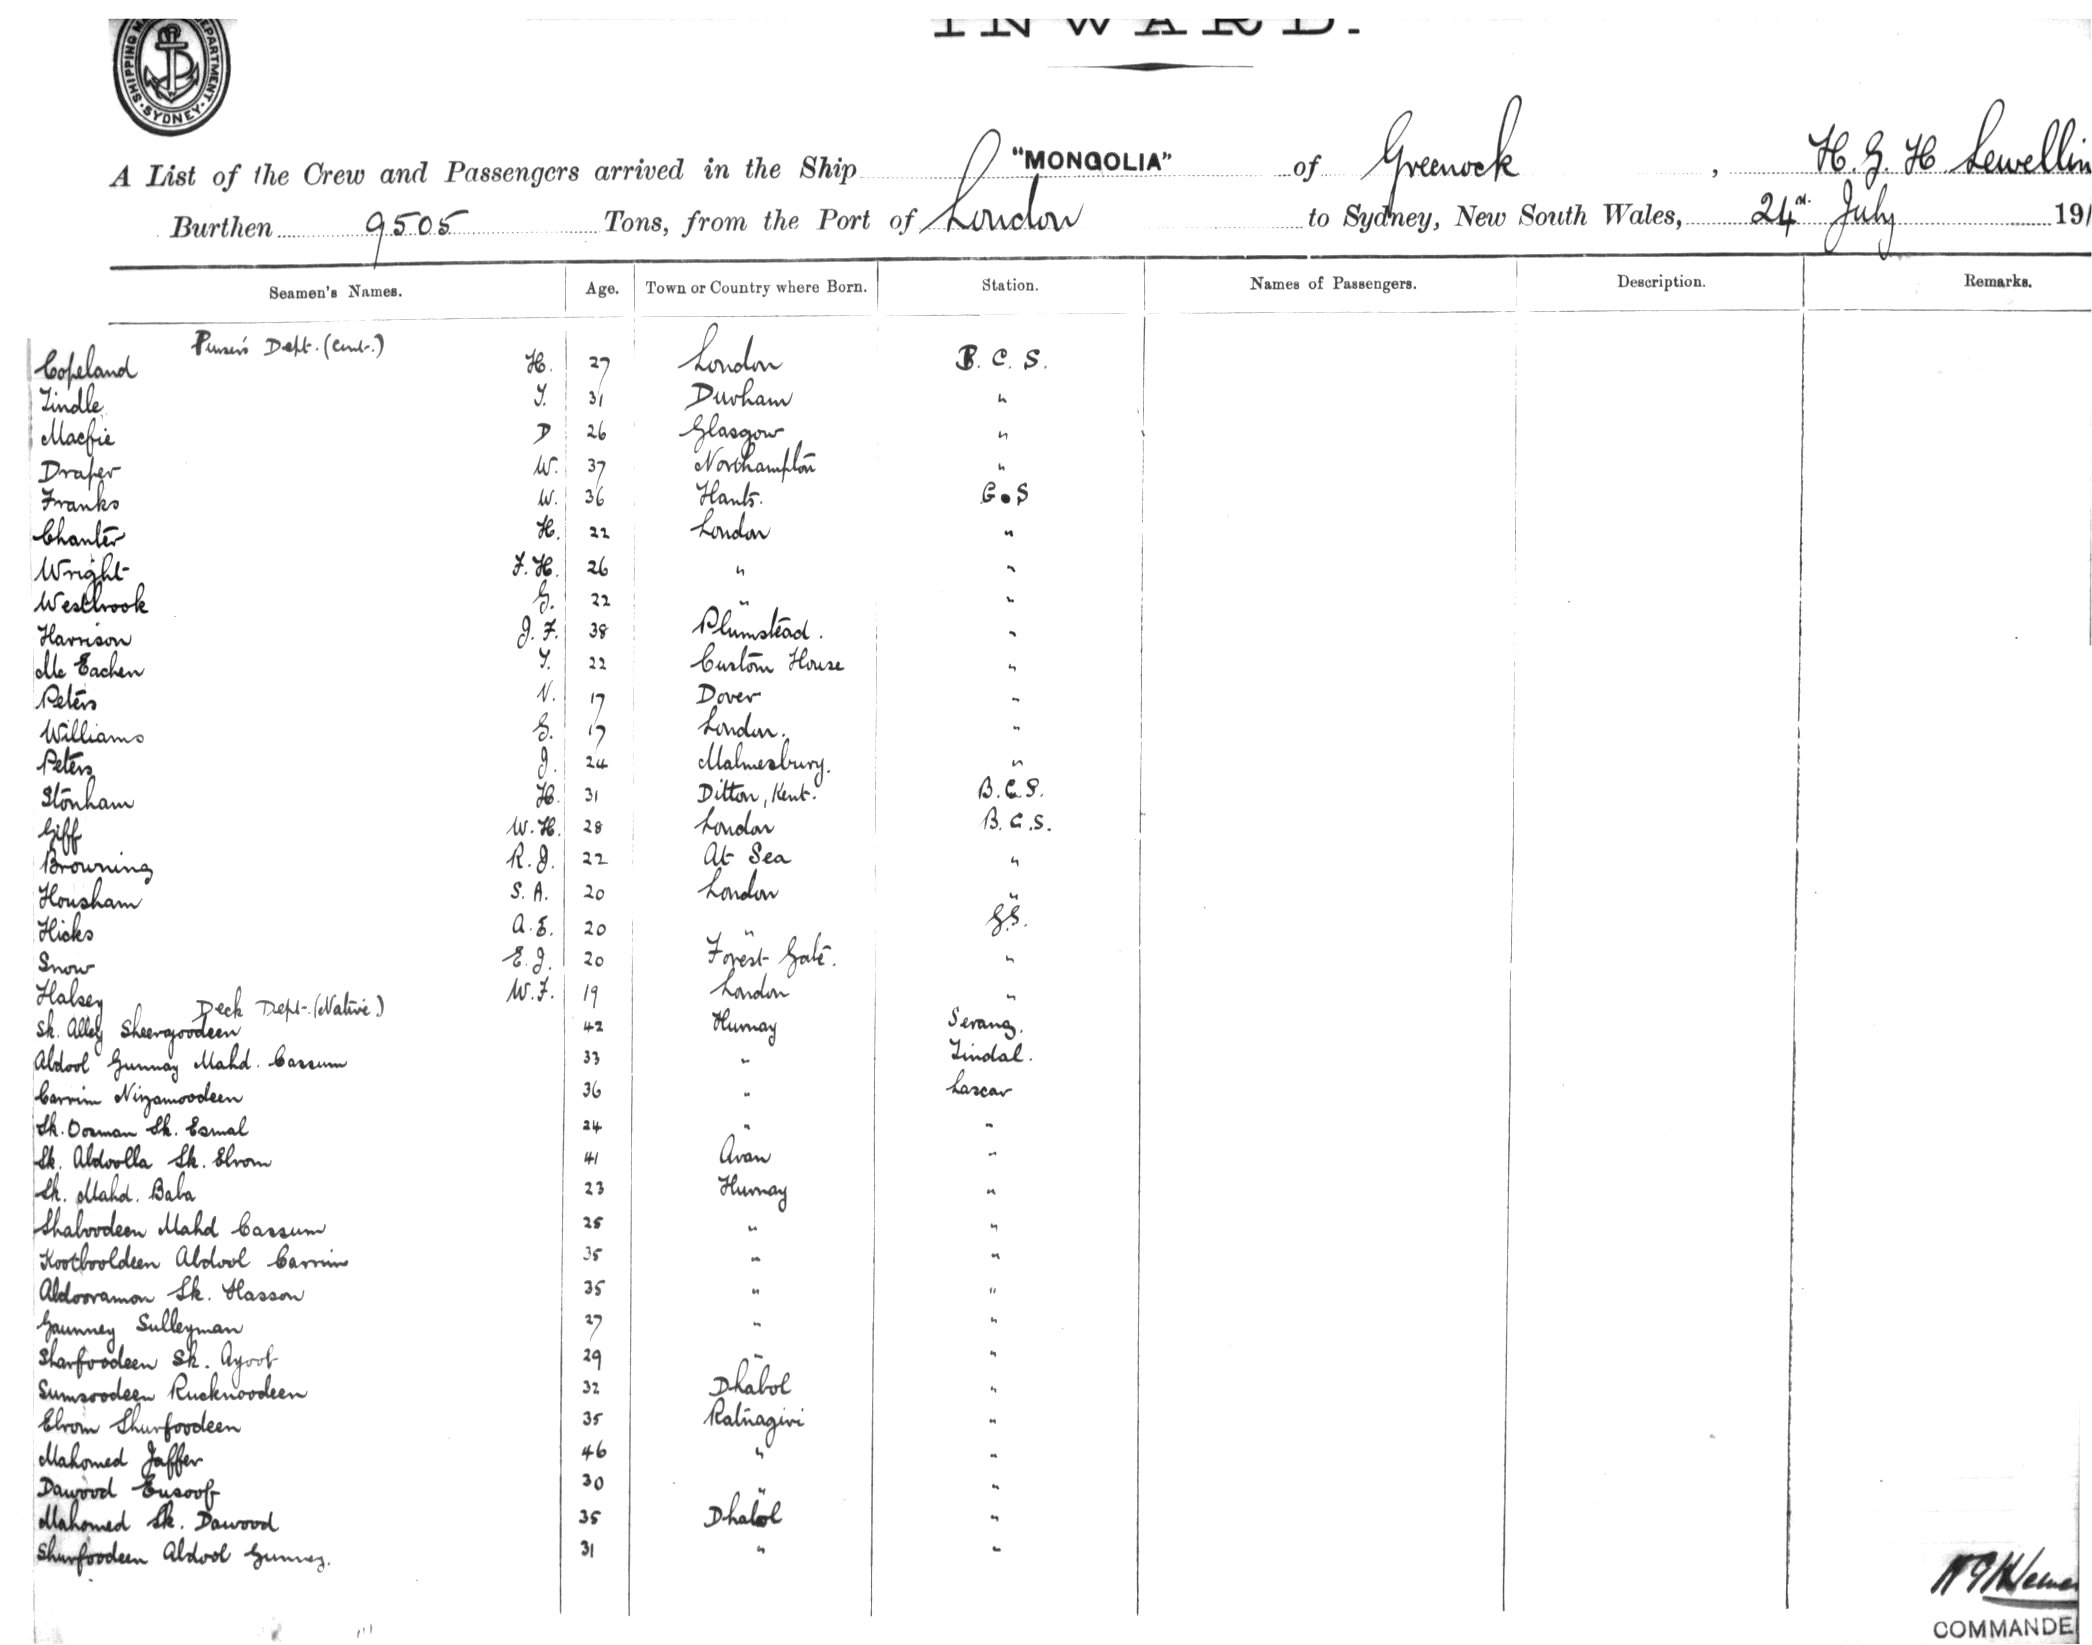 INWARD.
SHIPPING DEPARTMENT. SYDNEY
A List of the Crew and Passengers arrived in the Ship "MONGOLIA" of Greenock, H. G. H. Lewellin
Burthen 9505 Tons, from the Port of London to Sydney, New South Wales, 24th July 191
Seamen's Names. Age. Town or Country where Born. Station. Names of Passengers. Description. Remarks.
Purser's Dept. (Cont.)
Copeland H. 27 London B. C. S.
Tindle T. 31 Durham "
Macfie D 26 Glasgow "
Draper W. 37 Northampton "
Franks W. 36 Hants. G.S
Chanter H. 22 London "
Wright F. H. 26 " "
Westbrook G. 22 " "
Harrison J. F. 38 Plumstead. "
Mc Eachen T. 22 Custom House "
Peters V. 17 Dover "
Williams G. 17 London. "
Peters J. 24 Malmesbury. "
Stonham H. 31 Ditton, Kent. B.C.S.
Giff W. H. 28 London B.C.S.
Browning R. J. 22 At Sea "
Housham S. A. 20 London "
Hicks A. E. 20 " G.S.
Snow E. J. 20 Forest Gate. "
Halsey W. F. 19 London "
Deck Dept. (Native.)
Sk. Alley Sheergoodeen 42 Hurnay Serang.
Abdool Gunnay Mahd. Cassum 33 " Tindal.
Carrim Nizamoodeen 36 " Lascar
Sk. Oosman Sk. Esmal 24 " "
Sk. Abdoolla Sk. Ebrom 41 Avan "
Sk. Mahd. Baba 23 Hurnay "
Shaboodeen Mahd Cassum 25 " "
Kootbooldeen Abdool Carrim 35 " "
Abdooramon Sk. Hasson 35 " "
Gaunney Sulleyman 27 " "
Sharfoodeen Sk. Ayoob 29 " "
Sumsoodeen Rucknoodeen 32 Dhabol "
Ebrom Shurfoodeen 35 Ratnagiri "
Mahomed Jaffer 46 " "
Dawood Eusoof 30 " "
Mahomed Sk. Dawood 35 Dhabol "
Shurfoodeen Abdool Gunney. 31 " "
COMMANDE